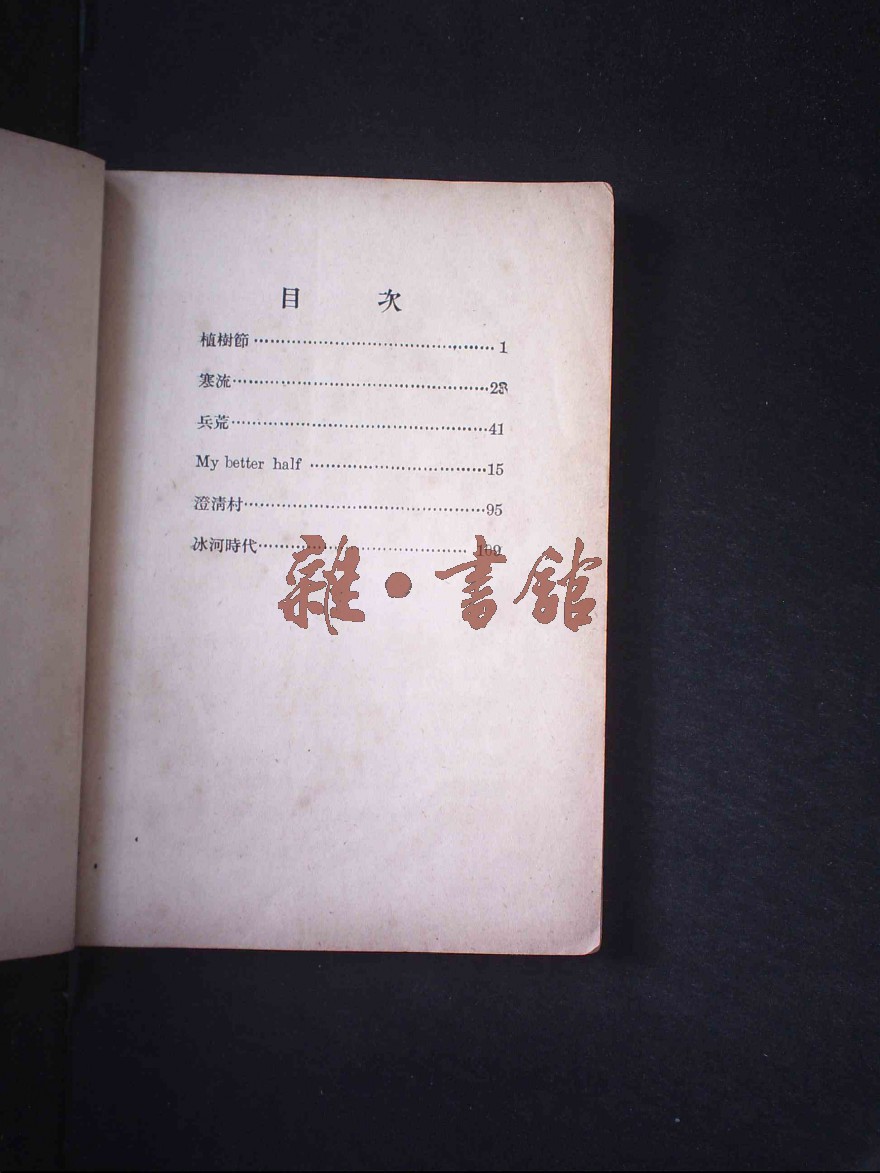 目 次
植樹節 1
寒流 23
兵荒 41
My better half 15
澄淸村 95
冰河時代 109
雜·書館